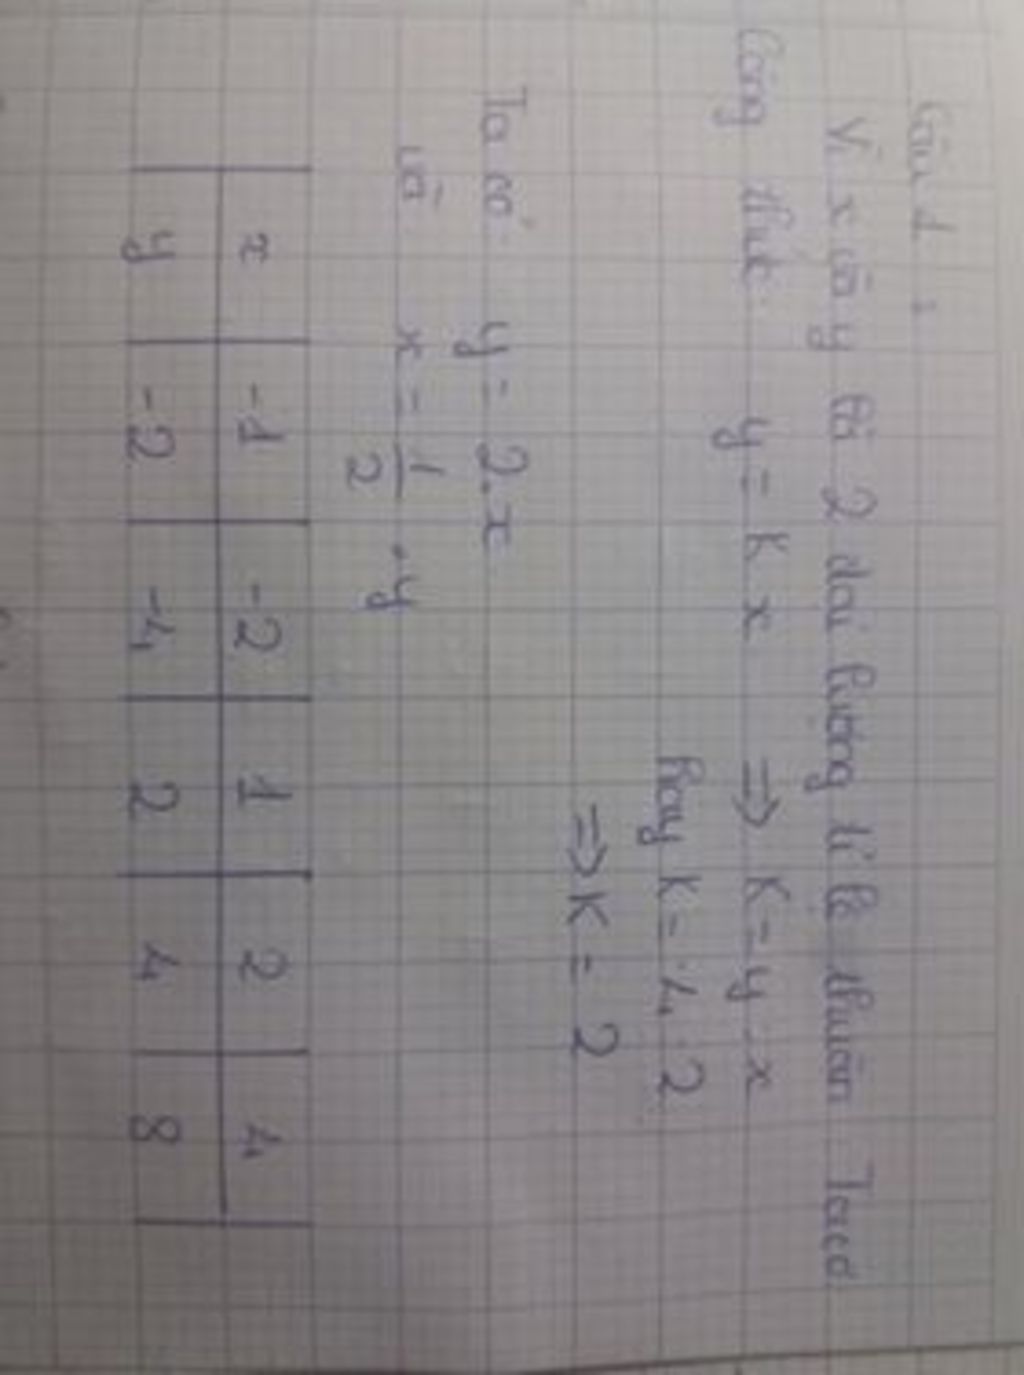 Câu 1 :
Vì x và y là 2 đại lượng tỉ lệ thuận Ta có
Công thức y = K x ⇒ K = y : x
hay K = 4 : 2
⇒ K = 2
Ta có y = 2.x
và x = 1/2 . y
x -1 -2 1 2 4
y -2 -4 2 4 8